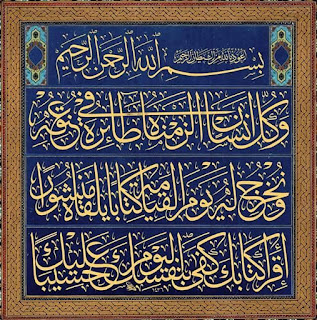 أعوذ بالله من الشيطان الرجيم
بسم الله الرحمن الرحيم
وكل إنسان ألزمناه طائره في عنقه
ونخرج له يوم القيامة كتابا يلقاه منشورا
اقرأ كتابك كفى بنفسك اليوم عليك حسيبا